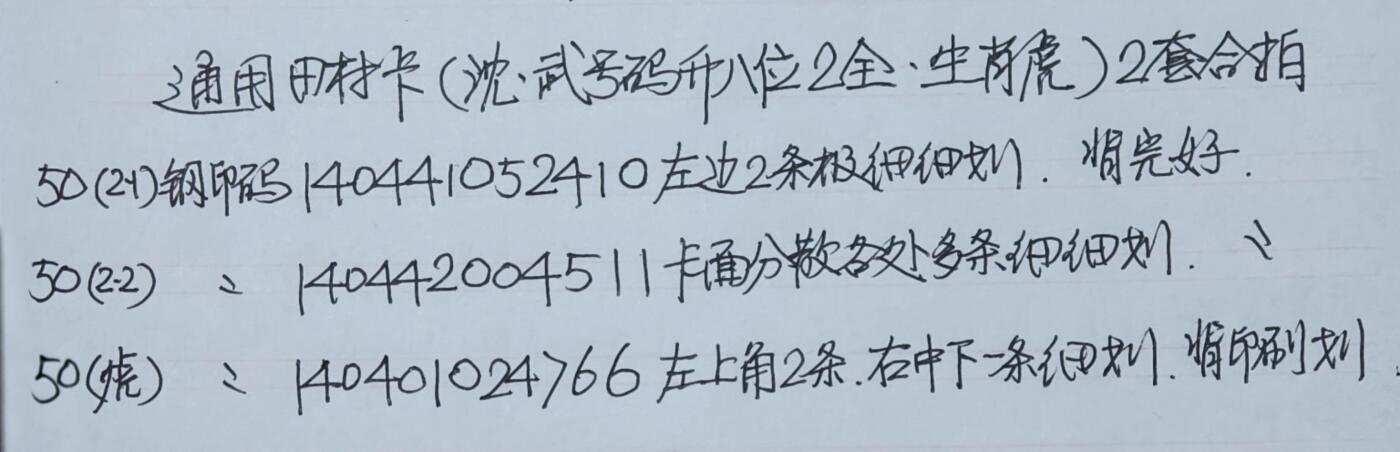 通用田村卡(沈·武号码开八位2全·生肖虎)2套合拍
50(2-1)钢印码140441052410左边2条极细细划.背完好.
50(2-2) 〃 140442004511卡面分散各处多条细细划. 〃
50(虎) 〃 140401024766左上角2条.右中下一条细划.背印刷划.